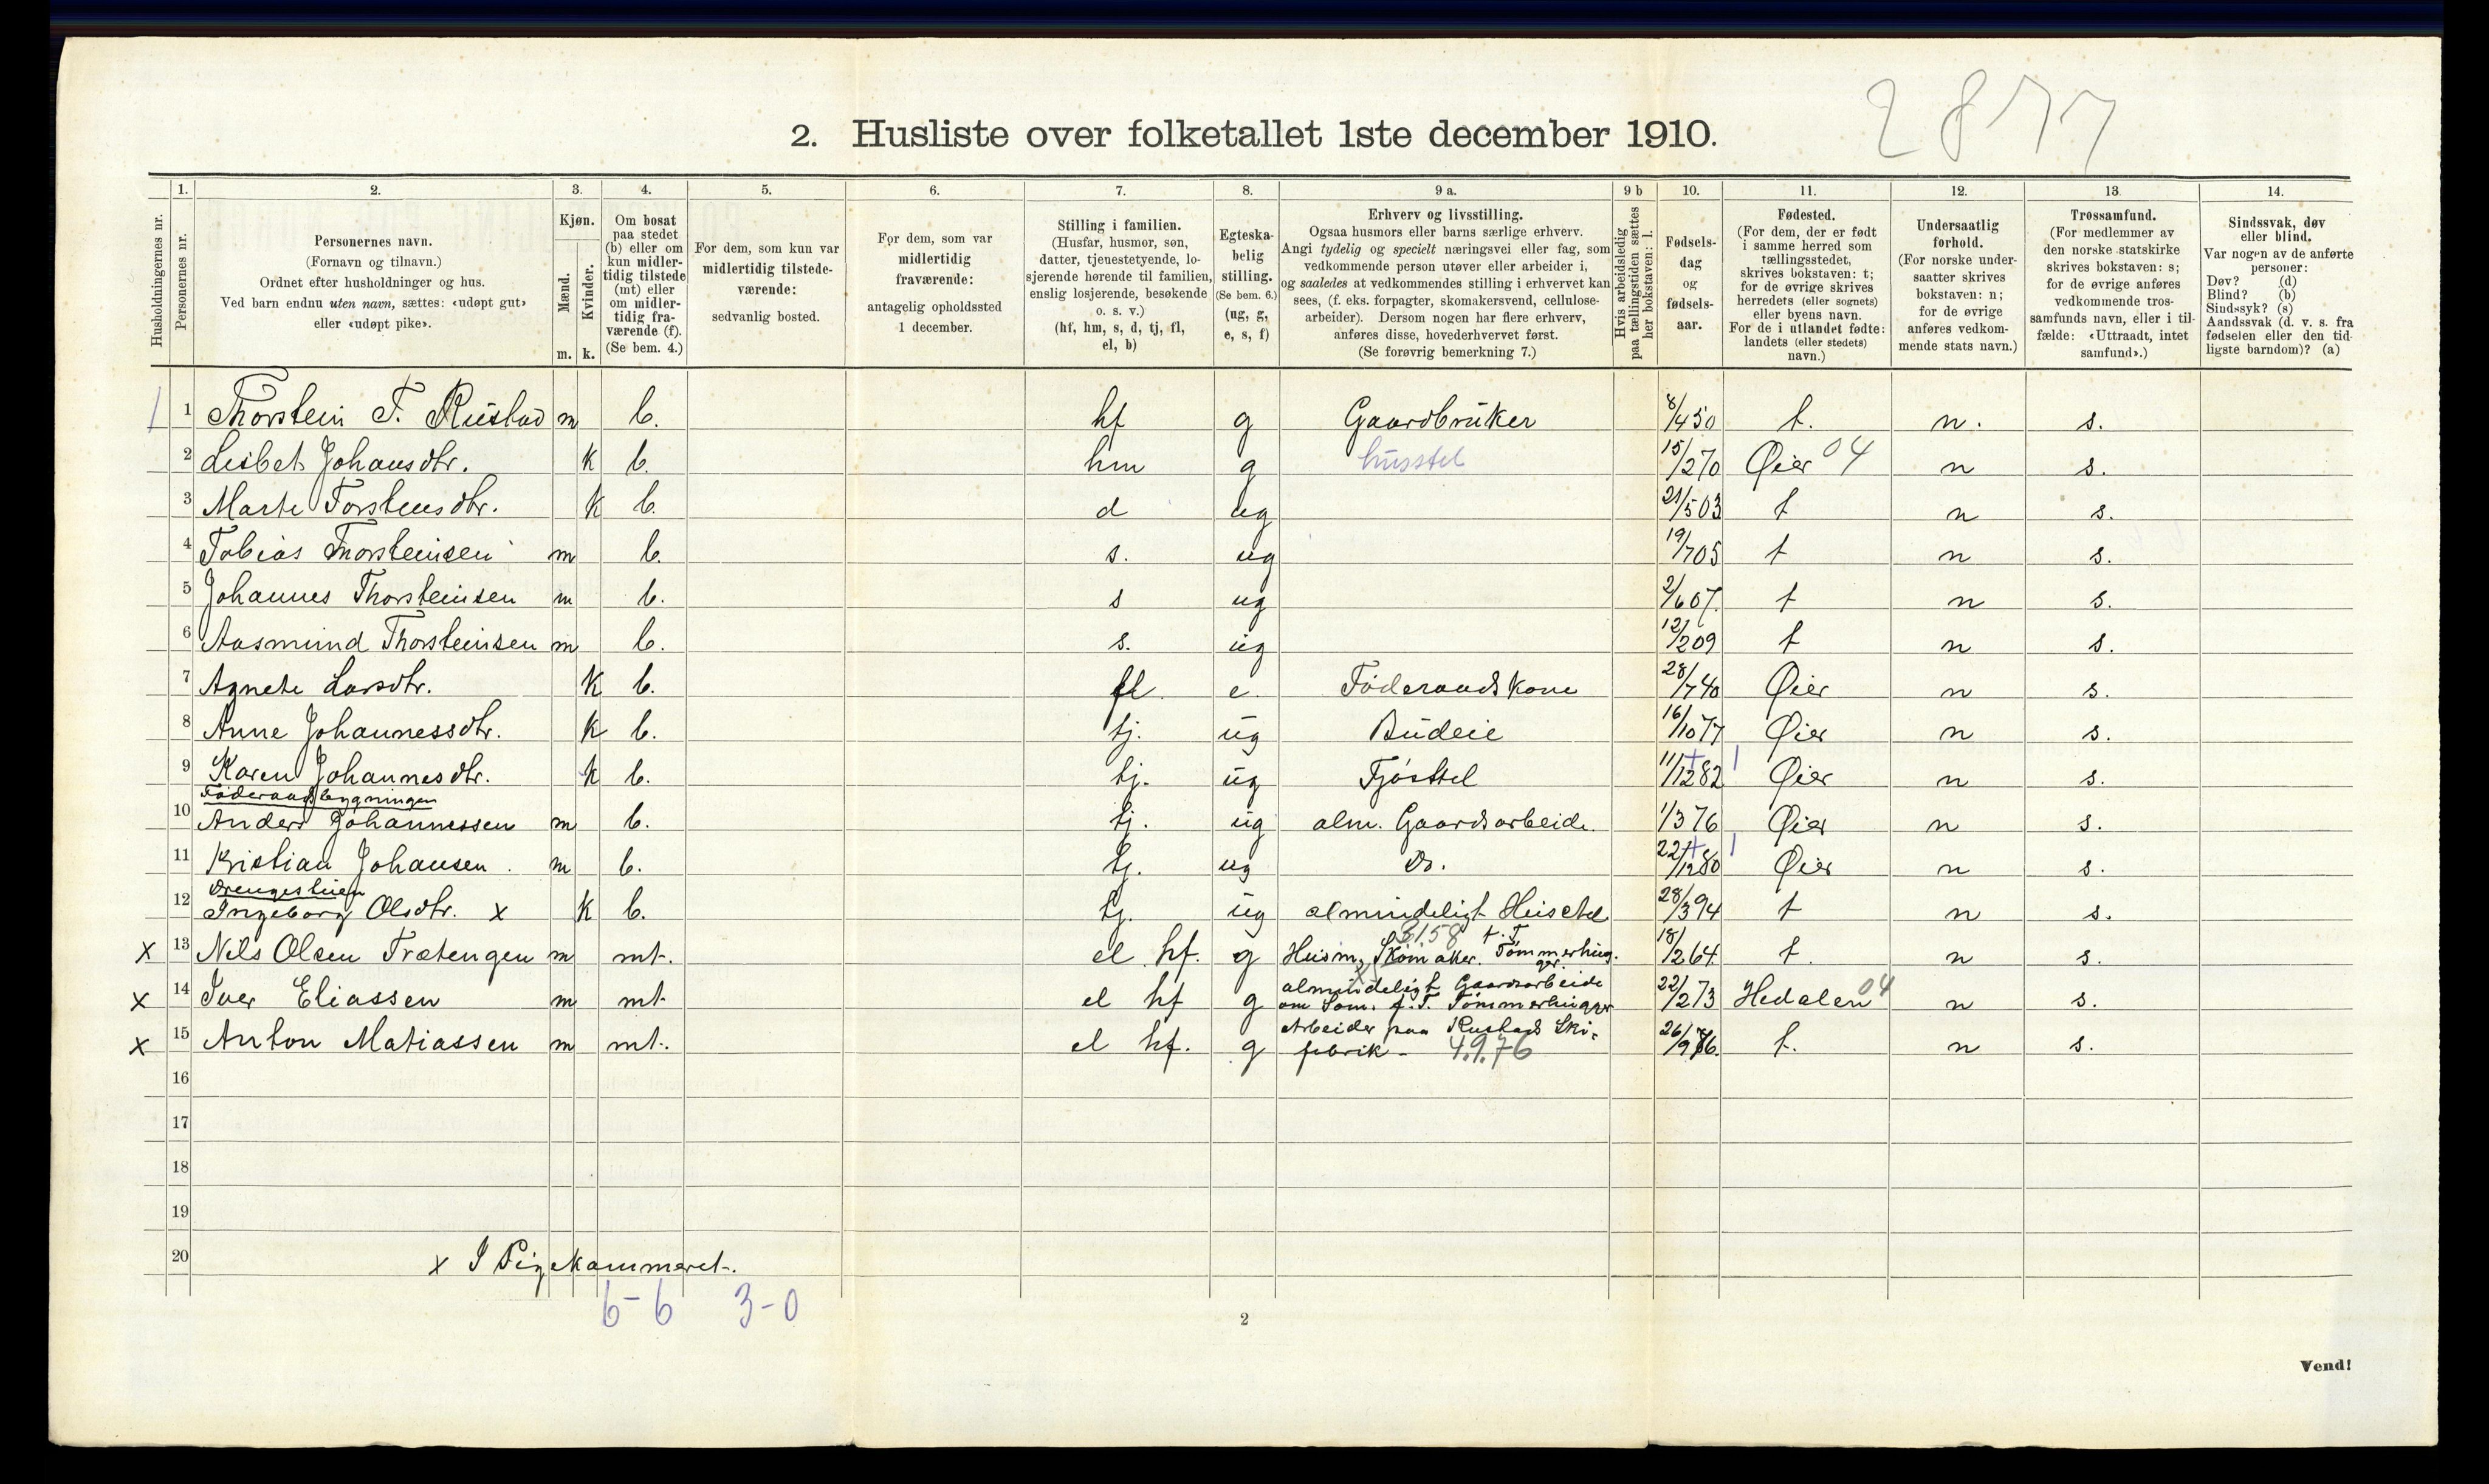 2877
2. Husliste over folketallet 1ste december 1910.
Husholdningernes nr.
1. Personernes nr.
2. Personernes navn.
(Fornavn og tilnavn.)
Ordnet efter husholdninger og hus.
Ved barn endnu uten navn, sættes: «udøpt gut»
eller «udøpt pike».
3. Kjøn.
Mænd. m.
Kvinder. k.
4. Om bosat
paa stedet
(b) eller om
kun midler-
tidig tilstede
(mt) eller
om midler-
tidig fra-
værende (f).
(Se bem. 4.)
5. For dem, som kun var
midlertidig tilstede-
værende:
sedvanlig bosted.
6. For dem, som var
midlertidig
fraværende:
antagelig opholdssted
1 december.
7. Stilling i familien.
(Husfar, husmor, søn,
datter, tjenestetyende, lo-
sjerende hørende til familien,
enslig losjerende, besøkende
o. s. v.)
(hf, hm, s, d, tj, fl,
el, b)
8. Egteska-
belig
stilling.
(Se bem. 6.)
(ug, g,
e, s, f)
9 a. Erhverv og livsstilling.
Ogsaa husmors eller barns særlige erhverv.
Angi tydelig og specielt næringsvei eller fag, som
vedkommende person utøver eller arbeider i,
og saaledes at vedkommendes stilling i erhvervet kan
sees, (f. eks. forpagter, skomakersvend, cellulose-
arbeider). Dersom nogen har flere erhverv,
anføres disse, hovederhvervet først.
(Se forøvrig bemerkning 7.)
9 b Hvis arbeidsledig
paa tællingstiden sættes
her bokstaven: l.
10. Fødsels-
dag
og
fødsels-
aar.
11. Fødested.
(For dem, der er født
i samme herred som
tællingsstedet,
skrives bokstaven: t;
for de øvrige skrives
herredets (eller sognets)
eller byens navn.
For de i utlandet fødte:
landets (eller stedets)
navn.)
12. Undersaatlig
forhold.
(For norske under-
saatter skrives
bokstaven: n;
for de øvrige
anføres vedkom-
mende stats navn.)
13 Trossamfund.
(For medlemmer av
den norske statskirke
skrives bokstaven: s;
for de øvrige anføres
vedkommende tros-
samfunds navn, eller i til-
fælde: «Uttraadt, intet
samfund».)
14. Sindssvak, døv
eller blind.
Var nogen av de anførte
personer:
Døv? (d)
Blind? (b)
Sindssyk? (s)
Aandssvak (d. v. s. fra
fødselen eller den tid-
ligste barndom)? (a)
1 1 Thorstein T. Rustad m b. hf g Gaardbruker 8/4 50 t. n. s.
2 Lisbet Johansdtr. k b. hm g husstel 15/2 70 Øier 04 n s.
3 Marte Torstensdtr. k b. d ug 21/5 03 t n s.
4 Tobias Thorsteinsen m b. s. ug 19/7 05 t n s.
5 Johannes Thorsteinsen m b. s ug 2/6 07. t n s.
6 Aasmund Thorsteinsen m b. s. ug 12/2 09 t n s.
7 Agnete Larsdtr. k b. fl. e. Föderaadskone 28/7 40 Øier n s.
8 Anne Johannessdtr. k b. tj. ug Budeie 16/10 77 Øier n s.
9 Karen Johannesdtr. k b. tj. ug Fjösstel 11/12 82 Øier n s.
Föderaadsbygningen
10 Anders Johannessen m b. tj. ug alm. Gaardsarbeide. 1/3 76 Øier n s.
11 Kristian Johansen. m b. tj. ug Do. 22/12 80 Øier n s.
Drengestuen
12 Ingeborg Olsdtr. x k b. tj. ug almindeligt Husstel 28/3 94 t n s.
3158 t. T
x 13 Nils Olsen Trætengen m mt. el hf. g Husm, Skomaker. Tømmerhug-
ger. 18/2 64. t. n s.
x 14 Iver Eliassen m mt el hf g almindeligt Gaardsarbeide
om Som. f. T. Tømmerhugger 22/2 73 Hedalen 04 n s.
x 15 Anton Matiassen m mt. el hf. g Arbeider paa Rustads Ski-
fabrik - 4.9.76 26/9 86. t. n s.
16
17
18
19
20 x I Pigekammeret.
6-6 3-0
2
Vend!